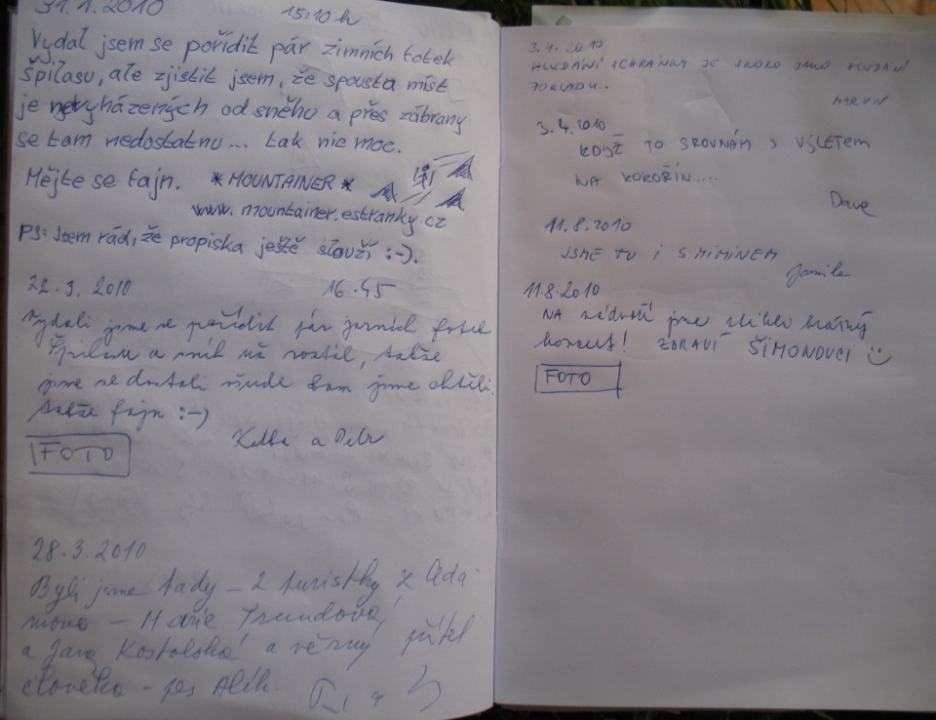 31.1.2010 15:10 h
Vydal jsem se pořídit pár zimních fotek
Špilasu, ale zjistit jsem, že spousta míst
je nevyházených od sněhu a přes zábrany
se tam nedostatnu... tak nic moc.
Mějte se fajn. *MOUNTAINER*
www.mountainer.estranky.cz
PS: Jsem rád, že propiska ještě slouží :-).
22.3.2010 16.45
Vydali jsme se pořídit pár jarních fotek
Špilasu a sníh už roztál, takže
jsme se dostali všude kam jsme chtěli.
takže fajn :-)
a Petr
FOTO
28.3.2010
Byli jsme tady - 2 turistky z Ada-
mova -
a Jana Kostolská a věrný přítel
člověka - pes Alík.
3.4.2010
HLEDÁNÍ SCHRÁNKY JE SKORO JAKO HLEDÁNÍ
POKLADU.
3.4.2010
KDYŽ TO SROVNÁM S VÝLETEM
NA KOKOŘÍN....
Dave
11.8.2010
JSME TU I S MIMINEM
Jamila
11.8.2010
NA nádvoří jsme slyšeli krásný
koncert! ZDRAVÍ ŠIMONOVCI
FOTO